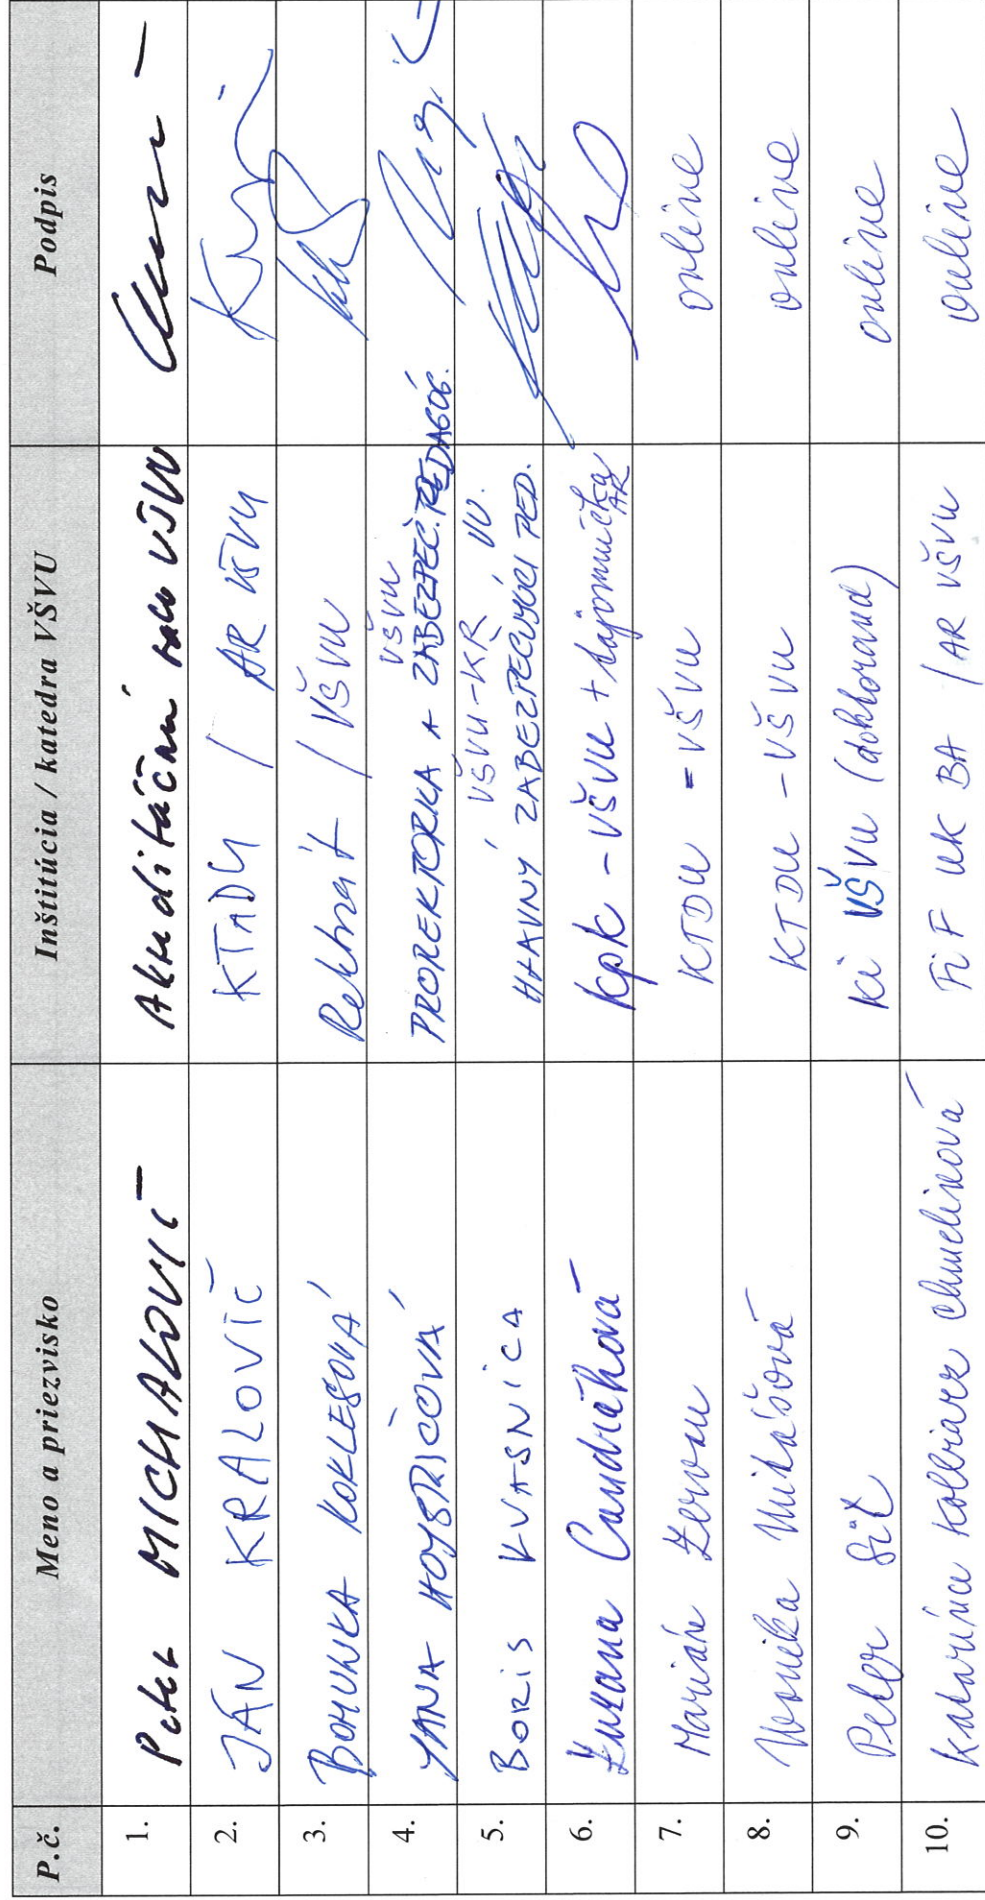 P.č. Meno a priezvisko Inštitúcia / katedra VŠVU Podpis
1. Peter MICHALOVIČ Akreditáčná rada VŠVU
2. JÁN KRALOVIČ KTADU / AR VŠVU
3. BOHUNKA KOKLESOVÁ Rektorát / VŠVU
4. JANA HOJSTRIČOVÁ PROREKTORKA A ZABEZPEČ. PEDAGÓG. VŠVU
5. BORIS KVASNICA VŠVU-KR VU.
HLAVNÝ ZABEZPEČUJÚCI PED.
6. Zuzana Cundráková KpK - VŠVU + tajomníčka AR
7. Marián Zervan KTDU - VŠVU online
8. Monika Mitášová KTDU - VŠVU online
9. Peter Sit KI VŠVU (doktorand) online
10. Katarína Kolbiarz Chmelinová FiF UK BA / AR VŠVU online